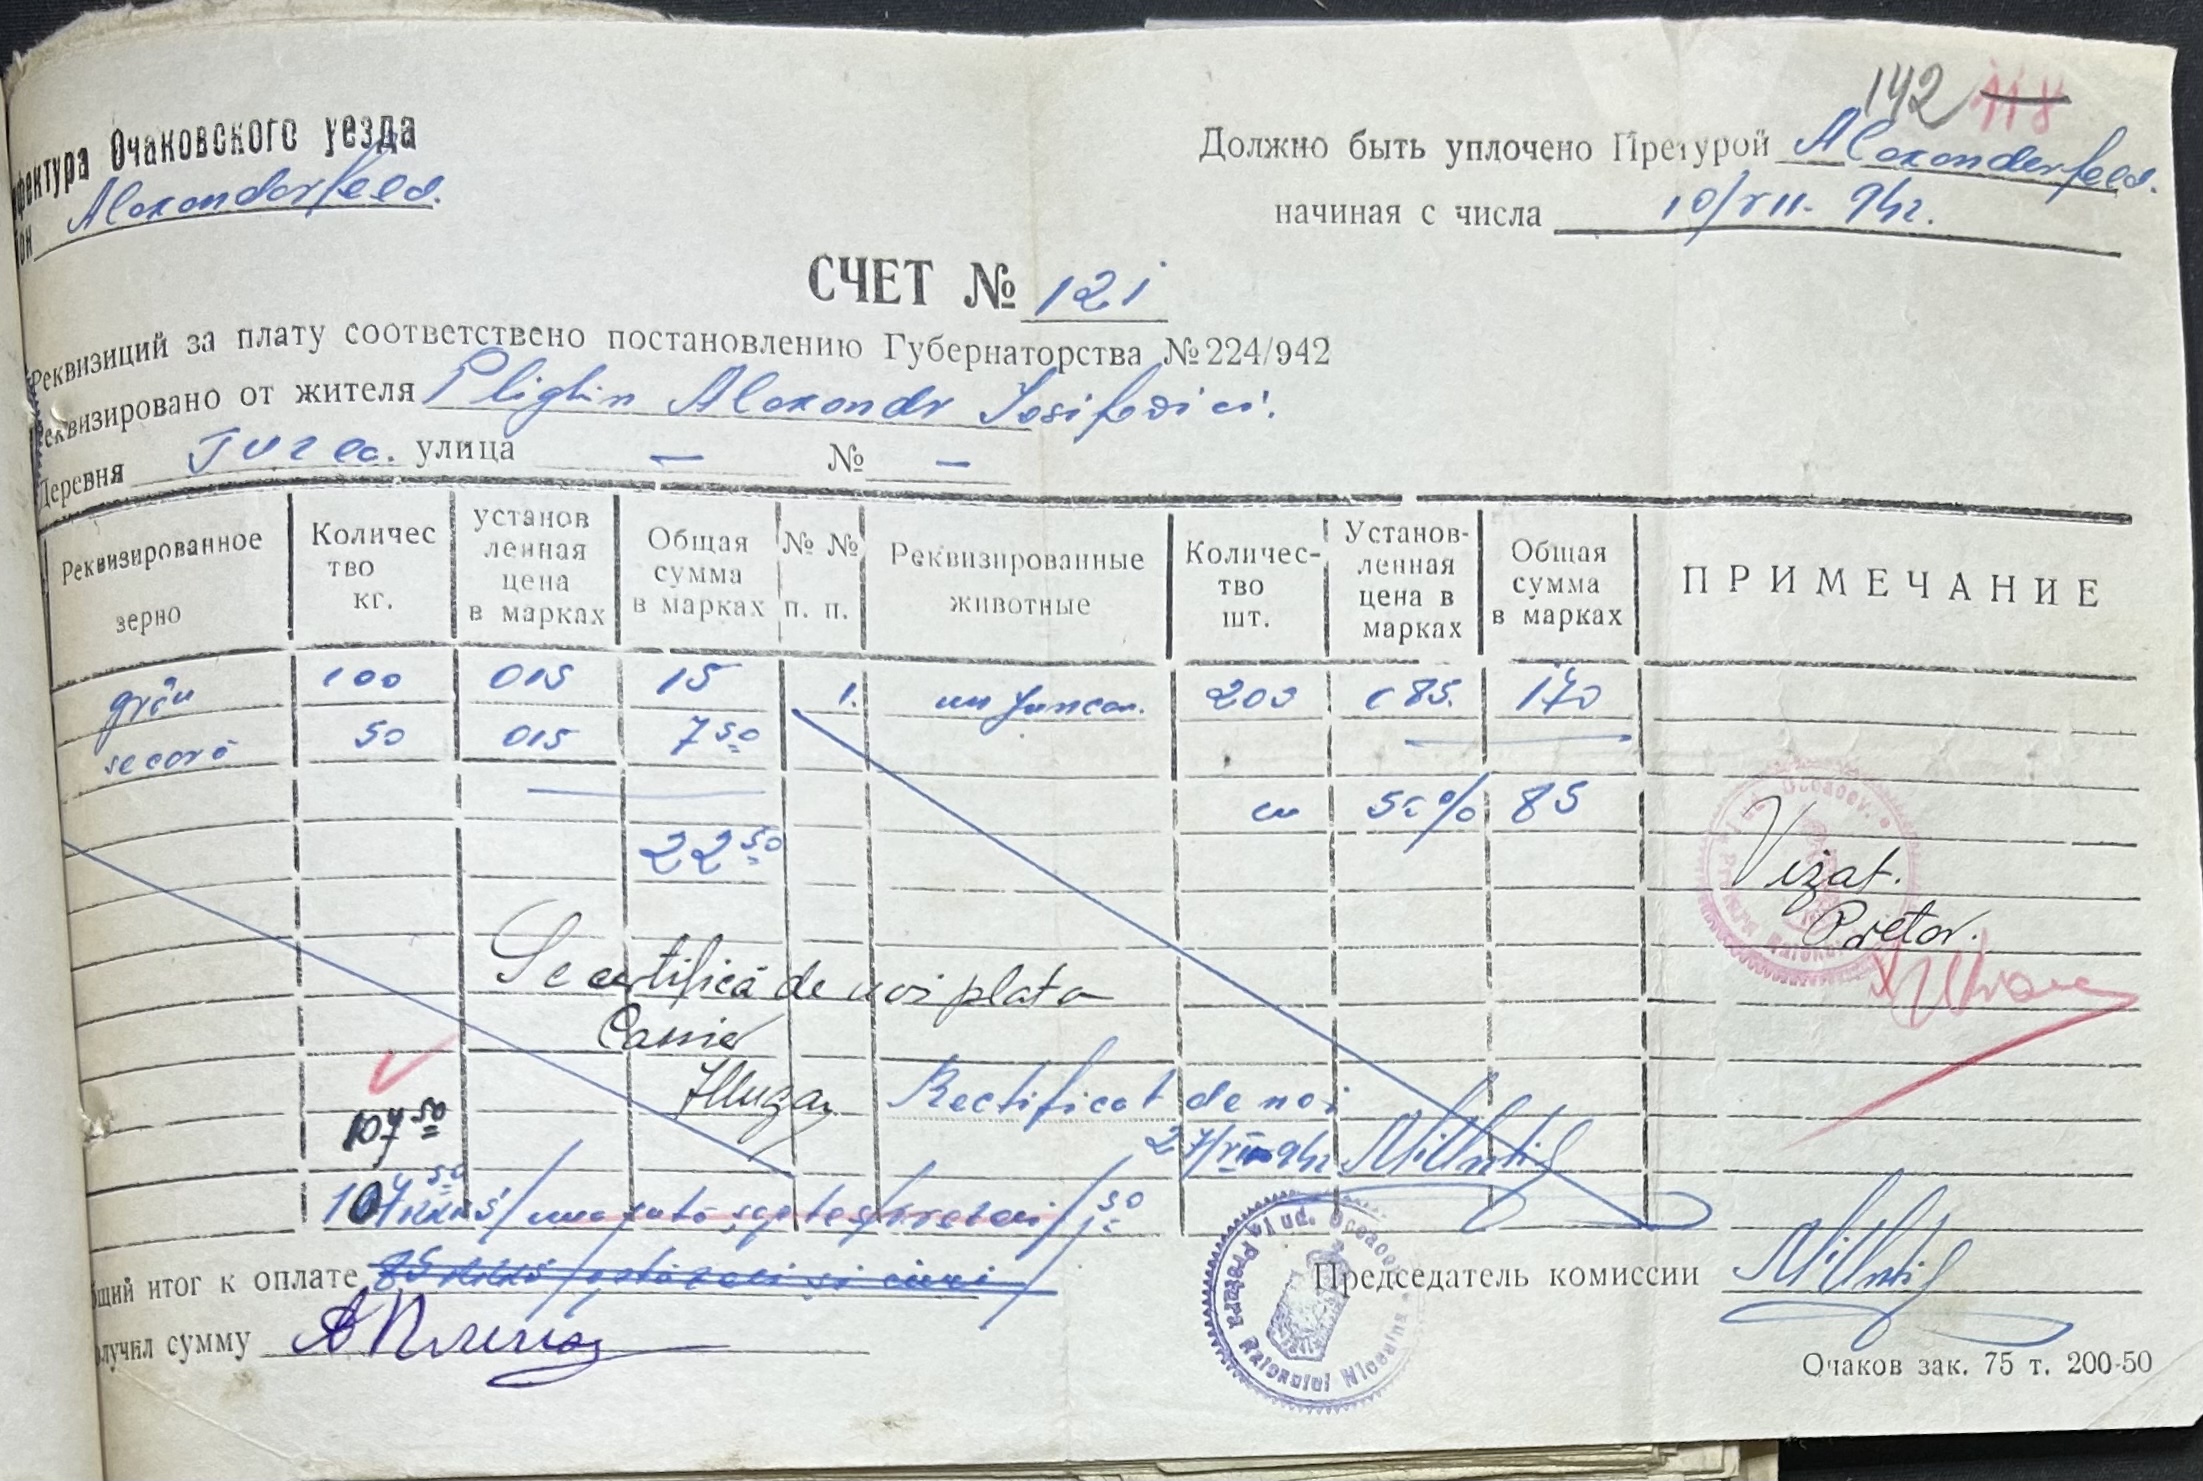 142 118
фектура Очаковского уезда
он Alexanderfeld.
Должно быть уплочено Претурой Alexanderfeld.
начиная с числа 10/VII. 942.
СЧЕТ № 121
Реквизиций за плату соответствено постановлению Губернаторства № 224/942
Реквизировано от жителя Plighin Alexandr Iosifovici.
Деревня улица — № —
Реквизированное зерно | Количес тво кг. | установ ленная цена в марках | Общая сумма в марках | № № п. п. | Реквизированные животные | Количес- тво шт. | Установ- ленная цена в марках | Общая сумма в марках | ПРИМЕЧАНИЕ
grâu 100 015 15 1. un juncan. 200 085. 170
secară 50 015 7 50
cu 50% 85
22 50
Vizat.
Pretor.
Se certifică de noi plata
Casier
Rectificat de noi
107 50
27/VII 942
107 50 /una sută șaptesprezeci/ 50
бщий итог к оплате
олучил сумму
Председатель комиссии
Jud. Oceacov
Pretura Raionului
Очаков зак. 75 т. 200-50